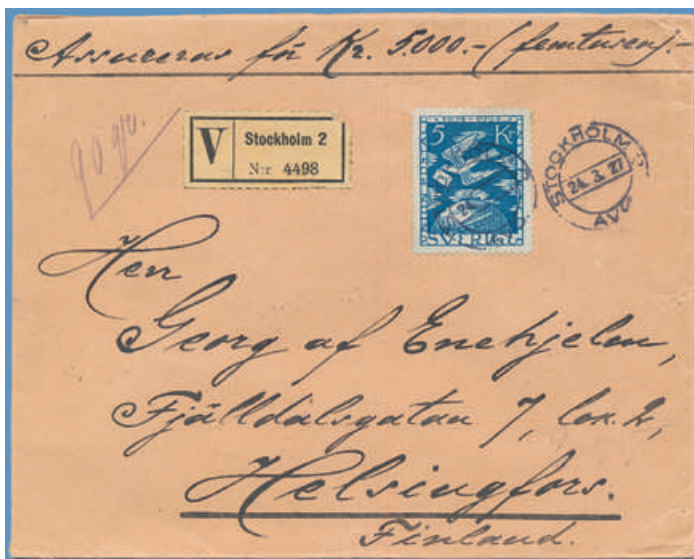 Assureras för Kr. 5.000.- (femtusen).-
90 gr.
V Stockholm 2
N:r 4498
5 Kr
SVERIGE
STOCKHOLM
24. 3. 27
AVG
Herr
Georg af Enehjelm,
Fjälldalsgatan 7, lok. 2,
Helsingfors.
Finland.